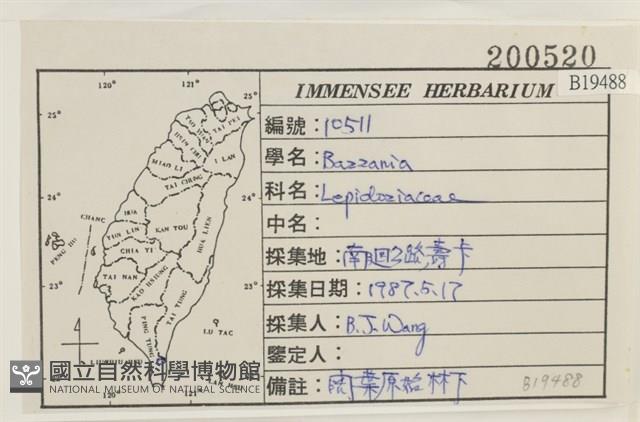 200520
IMMENSEE HERBARIUM
B19488
編號：10511
學名：Bazzania
科名：Lepidoziaceae
中名：
採集地：南迴公路壽卡
採集日期：1987.5.17
採集人：B.J.Wang
鑒定人：
備註：闊葉原始林下
B19488
120°
121°
25°
25°
TAI PEI
I LAN
MIAO LI
TAI CHUNG
24°
24°
CHANG
HUA
PENG HU
YUN LIN
NAN TOU
HUA LIEN
CHIA YI
TAI NAN
KAO HSIUNG
23°
23°
TAI TUNG
PING TUNG
LU TAO
國立自然科學博物館
NATIONAL MUSEUM OF NATURAL SCIENCE
120°
121°